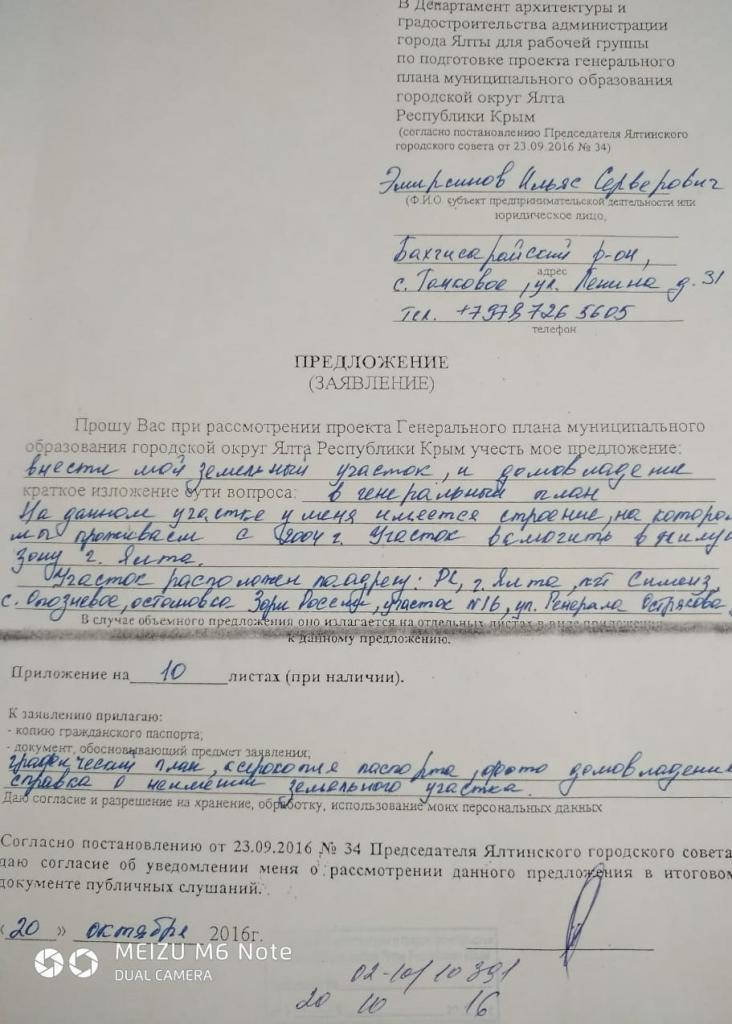 В Департамент архитектуры и
градостроительства администрации
города Ялты для рабочей группы
по подготовке проекта генерального
плана муниципального образования
городской округ Ялта
Республики Крым
(согласно постановлению Председателя Ялтинского
городского совета от 23.09.2016 № 34)
Эмирсинов Ильяс Серверович
(Ф.И.О. субъект предпринимательской деятельности или
юридическое лицо,
Бахчисарайский р-он,
адрес
с. Танковое, ул. Ленина д. 31
тел. +7978 726 5605
телефон
ПРЕДЛОЖЕНИЕ
(ЗАЯВЛЕНИЕ)
Прошу Вас при рассмотрении проекта Генерального плана муниципального
образования городской округ Ялта Республики Крым учесть мое предложение:
внести мой земельный участок, и домовладение
краткое изложение сути вопроса: в генеральный план
На данном участке у меня имеется строение, на котором
мы проживаем с 2004 г. Участок в
зону г. Ялта.
Участок расположен по адресу: РК, г. Ялта, пгт Симеиз,
с. Оползневое, остановка Зори России, участок №16, ул. Генерала Острякова
В случае объемного предложения оно излагается на отдельных листах в виде приложения
к данному предложению.
Приложение на 10 листах (при наличии).
К заявлению прилагаю:
- копию гражданского паспорта;
- документ, обосновывающий предмет заявления;
графический план, ксерокопия паспорта, фото домовладения
справка о неимении земельного участка.
Даю согласие и разрешение на хранение, обработку, использование моих персональных данных
Согласно постановлению от 23.09.2016 № 34 Председателя Ялтинского городского совета
даю согласие об уведомлении меня о рассмотрении данного предложения в итоговом
документе публичных слушаний.
«20» октября 2016г.
MEIZU M6 Note
DUAL CAMERA
02-10/10391
20 10 16